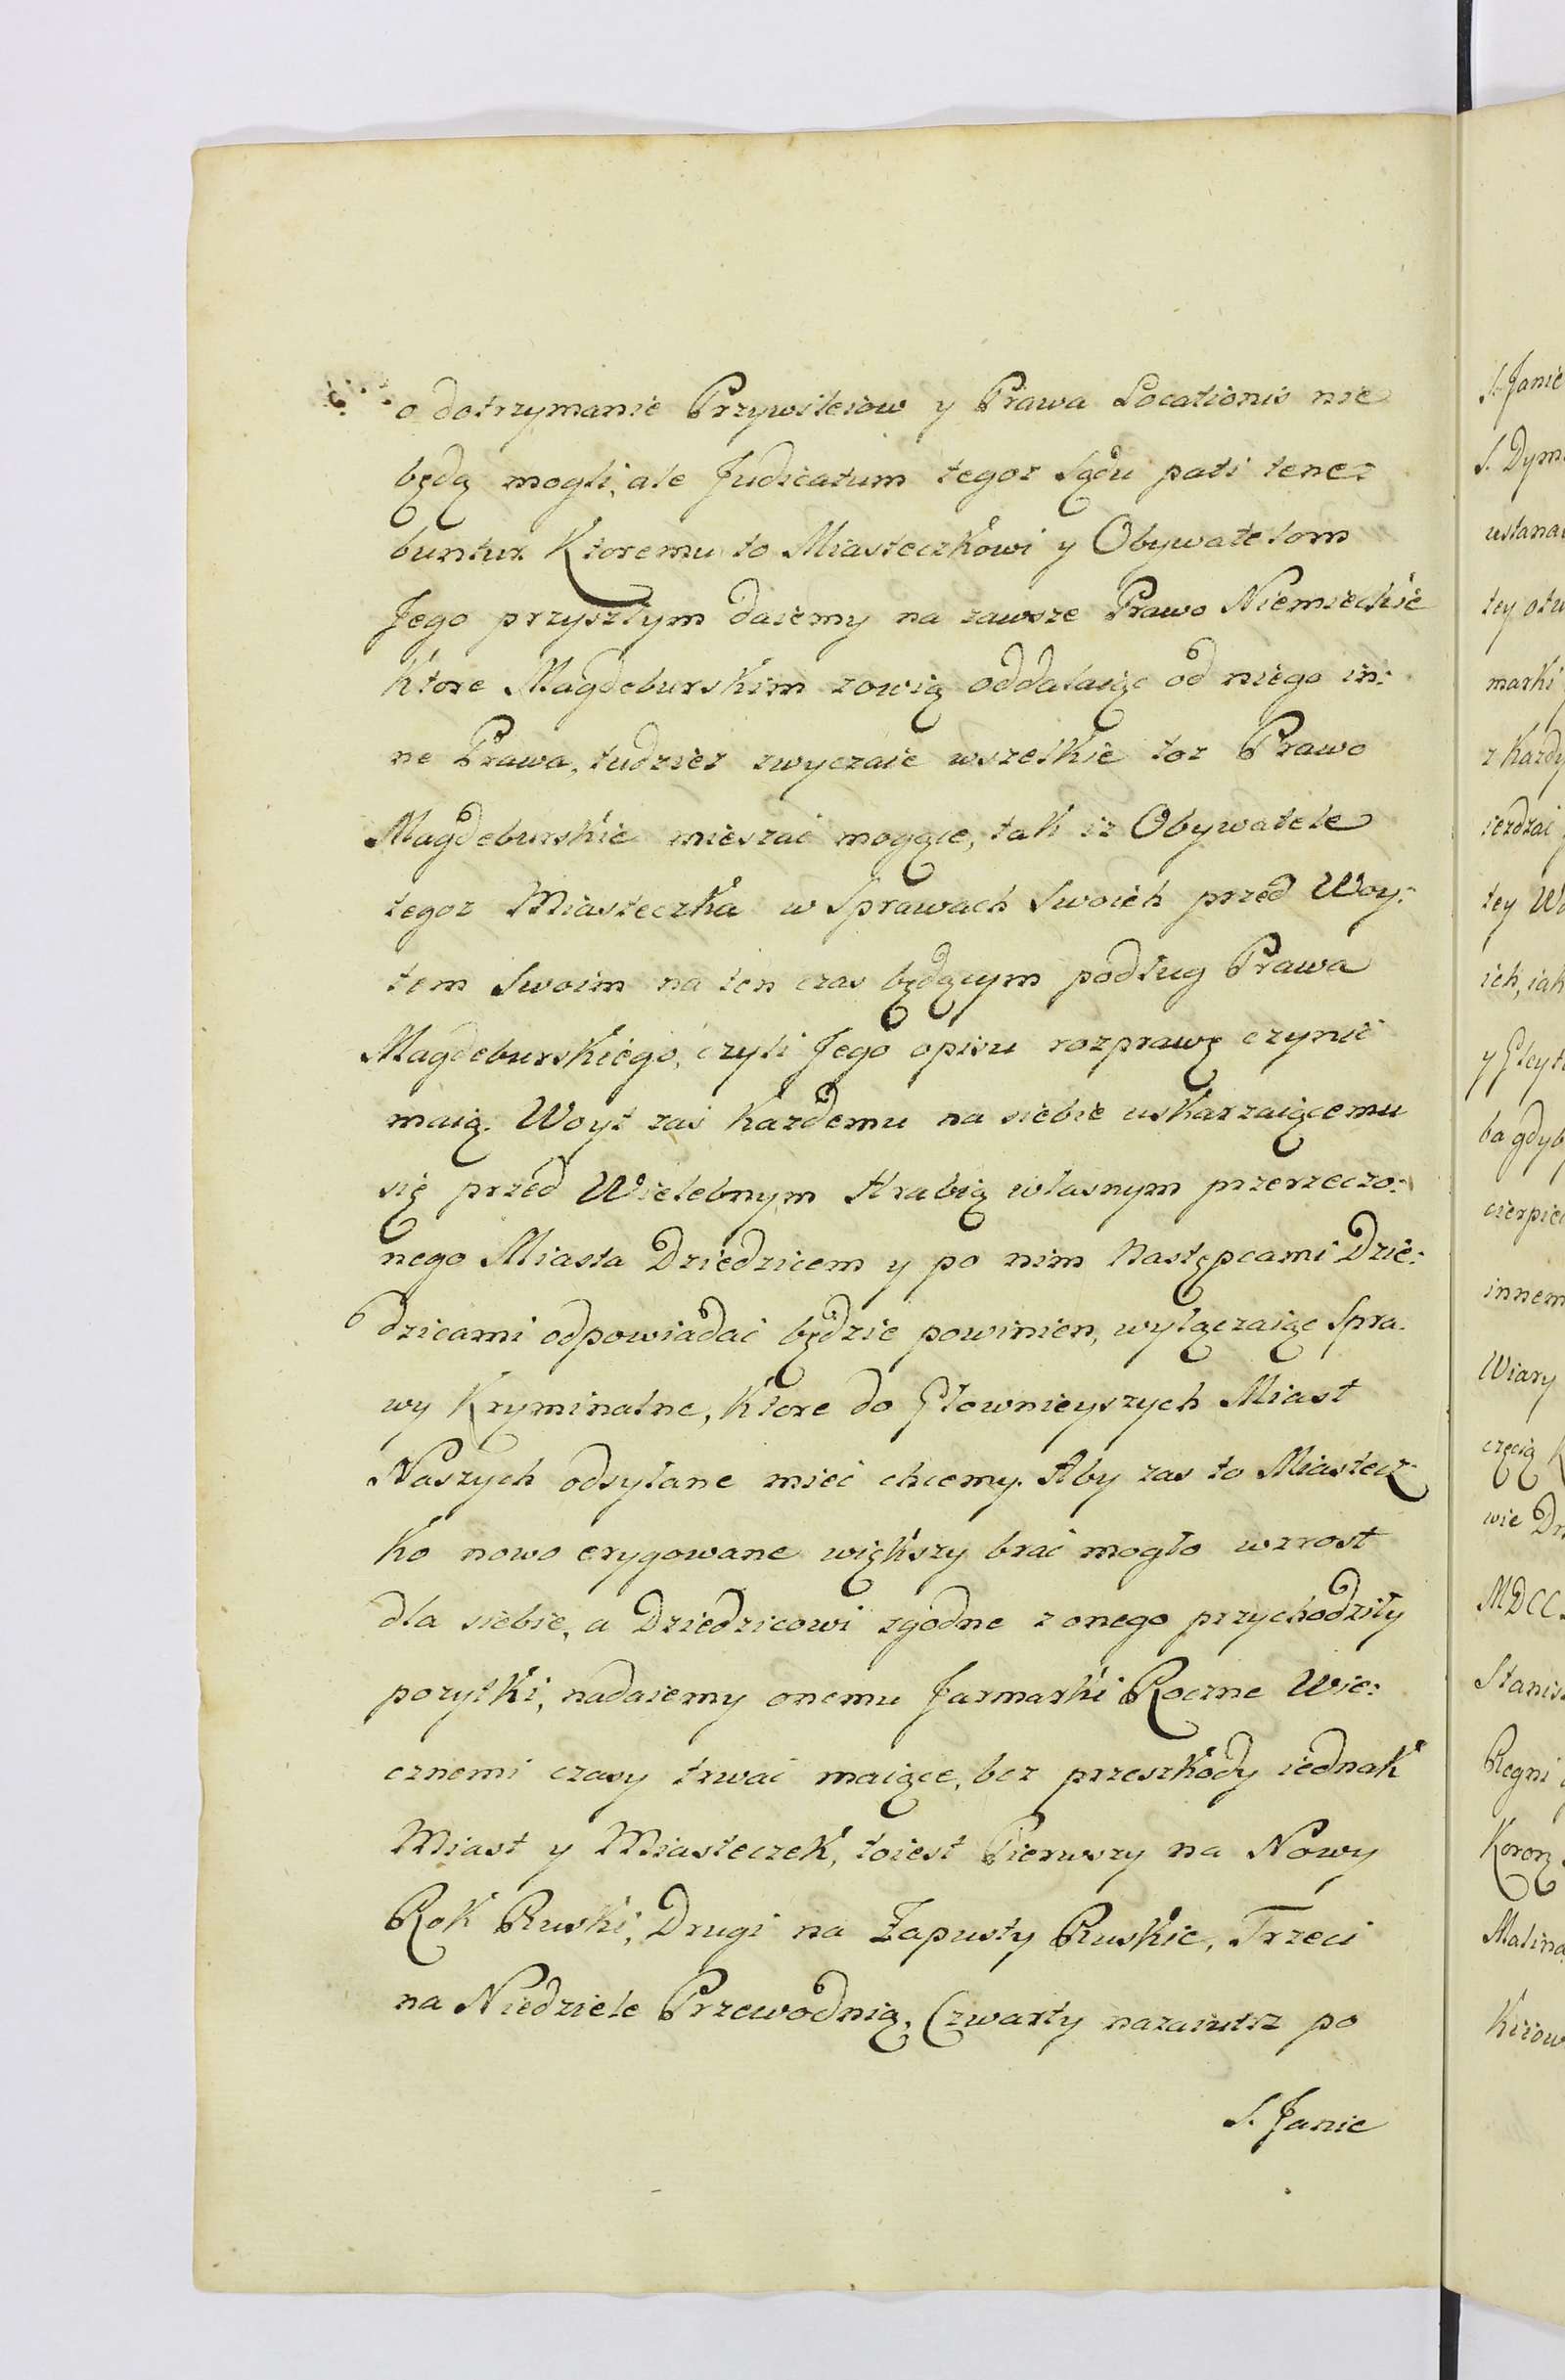 o dotrzymanie Przywileiow y Prawa Locationis nie
będą mogli, ale Judicatum tegoz Sądu pati tene:
buntur Ktoremu to Miasteczkowi y Obywatelom
Jego przyszłym daiemy na zawsze Prawo Niemieckie
Ktore Magdeburskim zowią oddalaiąc od niego in:
ne Prawa, tudziez zwyczaie wszelkie toz Prawo
Magdeburskie mieszać mogące, tak iz Obywatele
tegoz Miasteczka w Sprawach Swoich przed Woy:
tem Swoim na ten czas będącym podług Prawa
Magdeburskiego, czyli Jego opisu rozprawę czynić
maią. Woyt zaś Kazdemu na siebie uskarzaiącemu
się przed Wielebnym Hrabią własnym przerzeczo:
nego Miasta Dziedzicem y po nim Następcami Dzie:
dzicami odpowiadać będzie powinien, wyłączaiąc Spra:
wy Kryminalne, Ktore do Głownieyszych Miast
Naszych odsyłane mieć chcemy. Aby zas to Miastecz
ko nowo erygowane większy brać mogło wzrost
dla siebie, a Dziedzicowi zgodne z onego przychodziły
pozytki, nadaiemy onemu Jarmarki Roczne Wie:
cznemi czasy trwać maiące, bez przeszkody iednak
Miast y Miasteczek, toiest Pierwszy na Nowy
Rok Ruski, Drugi na Zapusty Ruskie, Trzeci
na Niedziele Przewodnią, Czwarty nazaiutrz po
S. Janie
S. Janie
S. Dym
ustana
tey otu
marki
z Kazdy
iezdzai
tey Wo
ich, iak
y Gleyt
ba gdyb
cierpie
innem
Wiary
częcią K
wie Dn
MDCC
Stanis
Regni
Koron
Malina
Kiiow